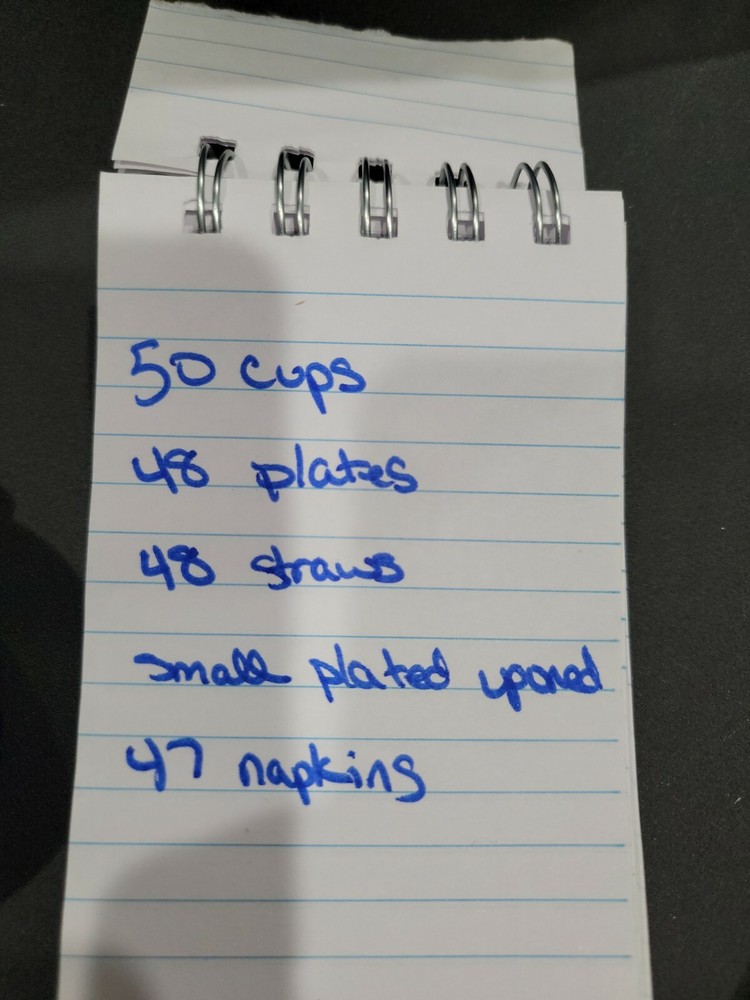 50 cups
48 plates
48 straws
small plated
47 napkins